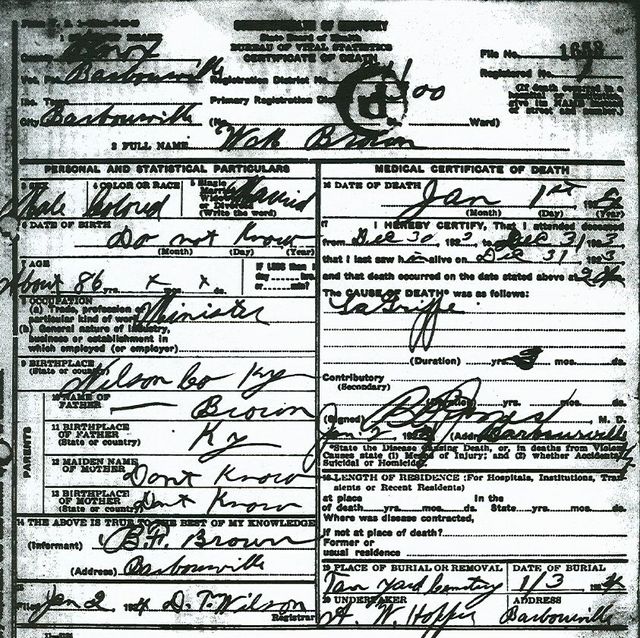 COMMONWEALTH OF KENTUCKY
State Board of Health
BUREAU OF VITAL STATISTICS
CERTIFICATE OF DEATH
1 PLACE OF DEATH
County Knox
Vot. Pre. Barbourville Registration District No.
File No. 1653
Registered No. 1
Inc. Town Primary Registration Dis
City Barbourville (No. St. Ward)
(If death occurred in a
give its NAME instead
of street and number.)
2 FULL NAME Brown
PERSONAL AND STATISTICAL PARTICULARS
3 SEX Male
4 COLOR OR RACE Colored
5 Single
Married
(Write the word) Married
6 DATE OF BIRTH Do not Know
(Month) (Day) (Year)
7 AGE About 86 yrs. x mos. x ds.
IF LESS than
day hrs.
or min?
8 OCCUPATION
(a) Trade, profession or
particular kind of work Minister
(b) General nature of industry,
business or establishment in
which employed (or employer)
9 BIRTHPLACE
(State or country) Nilson Co Ky
PARENTS
10 NAME OF
FATHER Brown
11 BIRTHPLACE
OF FATHER
(State or country) Ky
12 MAIDEN NAME
OF MOTHER Dont Know
13 BIRTHPLACE
OF MOTHER
(State or country) Dont Know
14 THE ABOVE IS TRUE TO THE BEST OF MY KNOWLEDGE
(Informant) B.F. Brown
(Address) Barbourville
15
Filed Jan 2 1924 D. T. Wilson
Registrar
MEDICAL CERTIFICATE OF DEATH
16 DATE OF DEATH Jan 1st 192
(Month) (Day) (Year)
17 I HEREBY CERTIFY, That I attended deceased
from Dec 30 1923 to Dec 31 1923
that I last saw him alive on Dec 31 1923
and that death occurred on the date stated above at
The CAUSE OF DEATH* was as follows:
La Grippe
(Duration) yrs. mos. ds.
Contributory
(Secondary)
(Duration) yrs. mos. ds.
(Signed) Jones M. D.
Jan 2 192 (Address) Barbourville
*State the Disease Causing Death, or, in deaths from Violent
Causes state (1) Means of Injury; and (2) whether Accidental,
Suicidal or Homicidal.
18 LENGTH OF RESIDENCE (For Hospitals, Institutions, Tran-
sients or Recent Residents)
at place In the
of death yrs. mos. ds. State yrs. mos. ds.
Where was disease contracted,
if not at place of death?
Former or
usual residence
19 PLACE OF BURIAL OR REMOVAL DATE OF BURIAL
Tan Yard Cemetery 1/3 1924
20 UNDERTAKER ADDRESS
A. W. Hopper Barbourville